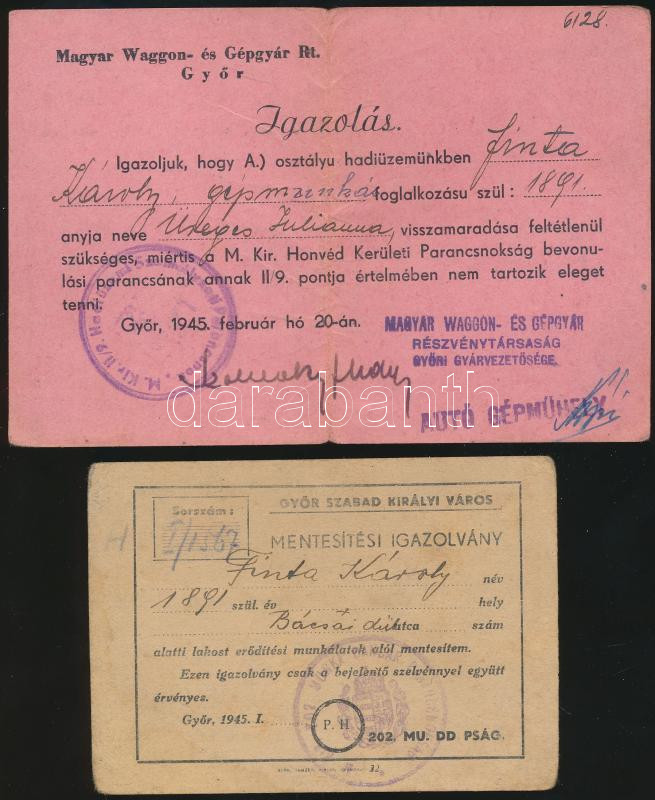 6128.
Magyar Waggon- és Gépgyár Rt.
Győr
Igazolás.
Igazoljuk, hogy A.) osztályu hadiüzemünkben Finta
Károly, gépmunkás foglalkozásu szül: 1891.
anyja neve Üveges Julianna, visszamaradása feltétlenül
szükséges, miértis a M. Kir. Honvéd Kerületi Parancsnokság bevonu-
lási parancsának annak II/9. pontja értelmében nem tartozik eleget
tenni.
Győr, 1945. február hó 20-án.
MAGYAR WAGGON- ÉS GÉPGYÁR
RÉSZVÉNYTÁRSASÁG
GYŐRI GYÁRVEZETŐSÉGE.
AUTÓ GÉPMŰHELY
darabanth
Sorszám:
I/1567
GYŐR SZABAD KIRÁLYI VÁROS
MENTESÍTÉSI IGAZOLVÁNY
Finta Károly név
1891 szül. év hely
Bácsai út utca szám
alatti lakost erődítési munkálatok alól mentesítem.
Ezen igazolvány csak a bejelentő szelvénnyel együtt
érvényes.
Győr, 1945. I.
P. H.
202. MU. DD PSÁG.
32.